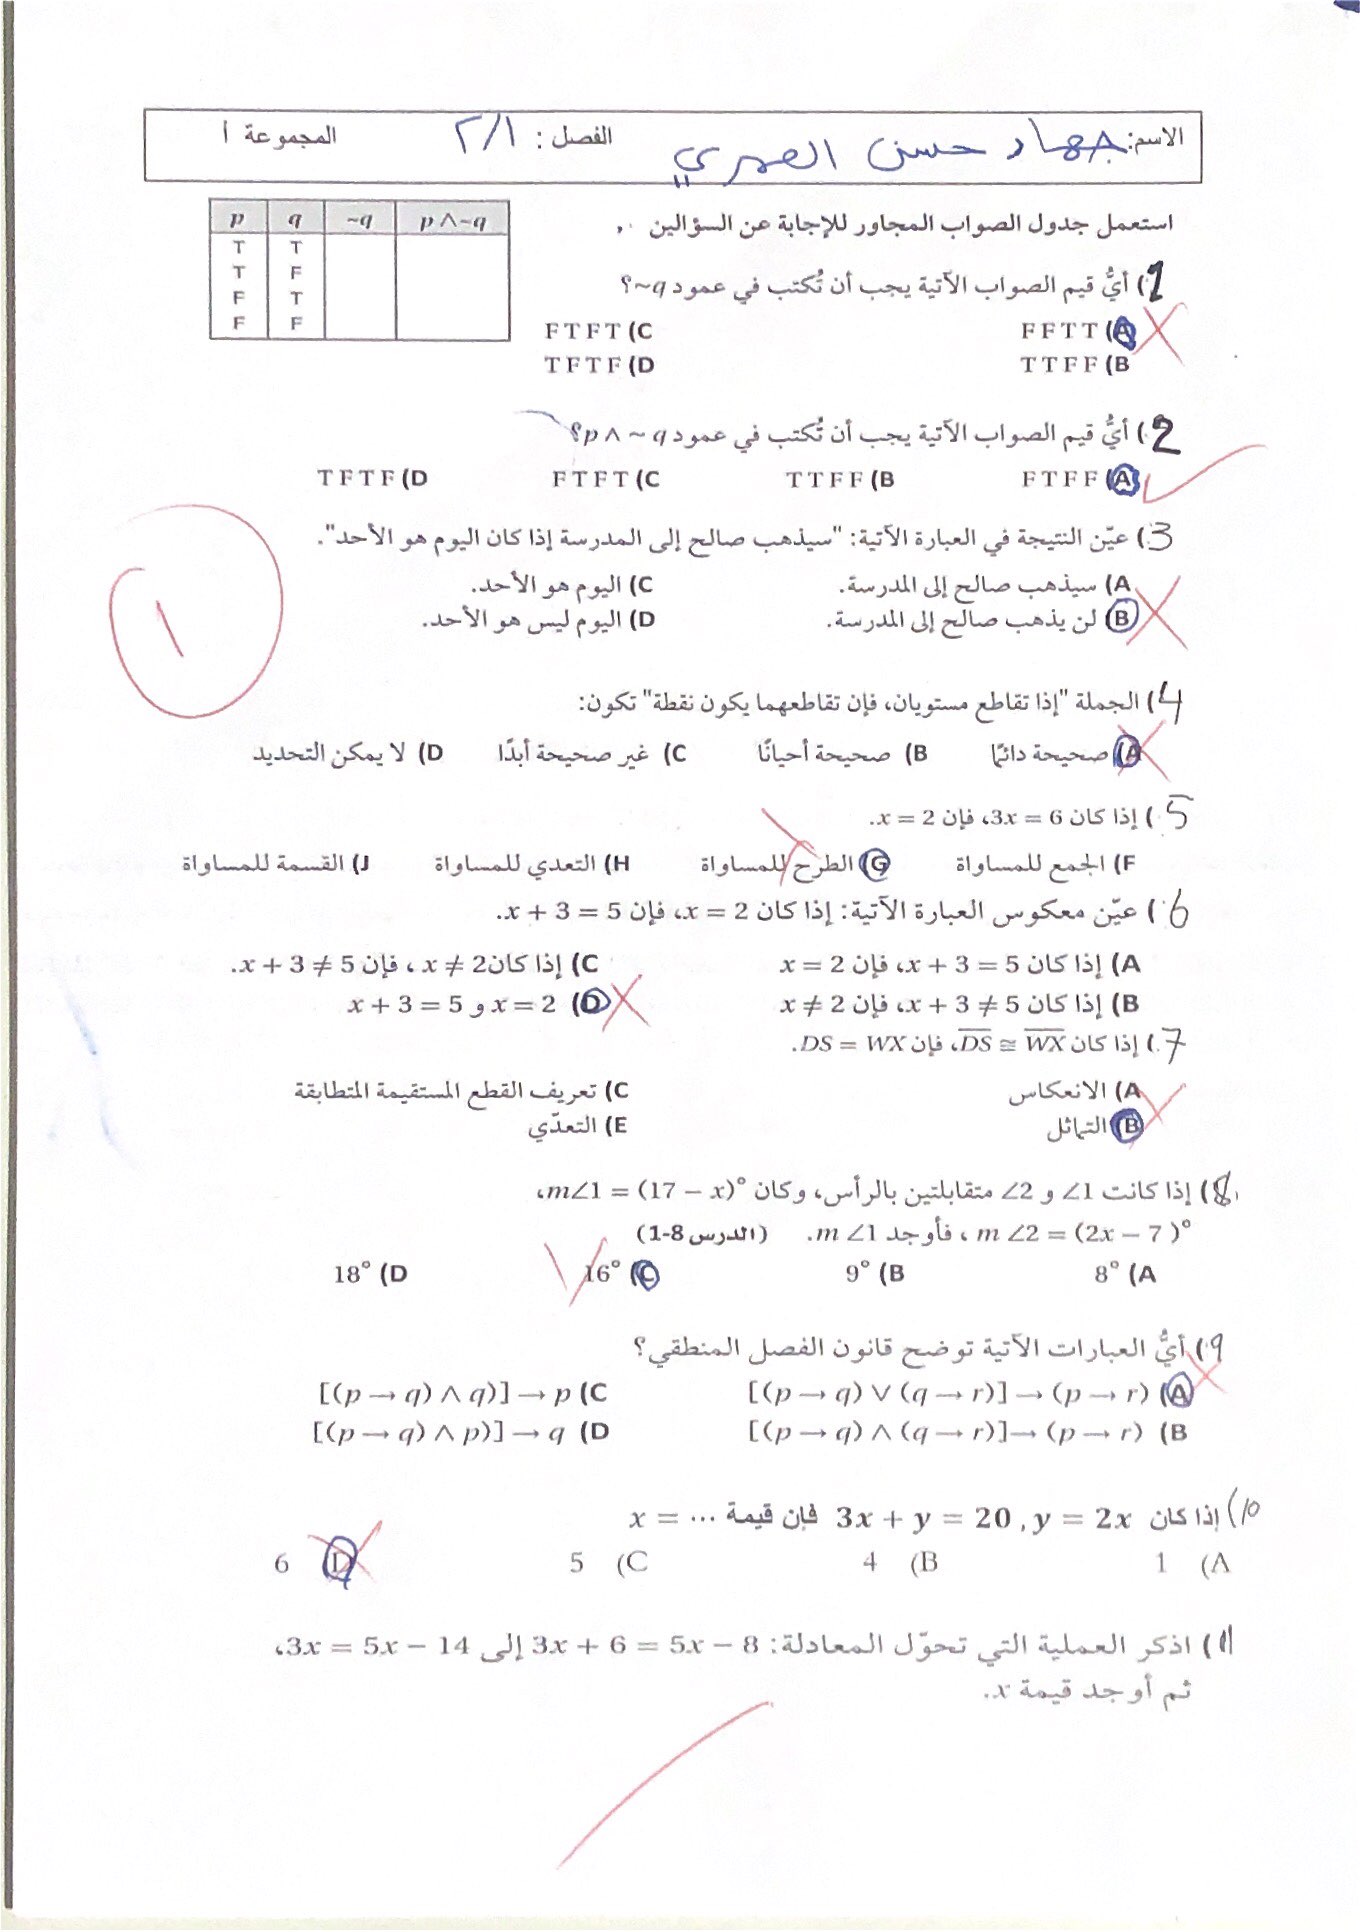 الاسم: جهاد حسن العمري الفصل : ٢/١ المجموعة أ
استعمل جدول الصواب المجاور للإجابة عن السؤالين
p q ~q p ∧ ~q
T T
T F
F T
F F
1) أيُّ قيم الصواب الآتية يجب أن تُكتب في عمود ~q؟
A) F F T T C) F T F T
B) T T F F D) T F T F
2) أيُّ قيم الصواب الآتية يجب أن تُكتب في عمود p ∧ ~ q؟
A) F T F F B) T T F F C) F T F T D) T F T F
3) عيّن النتيجة في العبارة الآتية: "سيذهب صالح إلى المدرسة إذا كان اليوم هو الأحد".
A) سيذهب صالح إلى المدرسة. C) اليوم هو الأحد.
B) لن يذهب صالح إلى المدرسة. D) اليوم ليس هو الأحد.
١
4) الجملة "إذا تقاطع مستويان، فإن تقاطعهما يكون نقطة" تكون:
A) صحيحة دائمًا B) صحيحة أحيانًا C) غير صحيحة أبدًا D) لا يمكن التحديد
5) إذا كان 3x = 6، فإن x = 2.
F) الجمع للمساواة G) الطرح للمساواة H) التعدي للمساواة J) القسمة للمساواة
6) عيّن معكوس العبارة الآتية: إذا كان x = 2، فإن x + 3 = 5.
A) إذا كان x + 3 = 5، فإن x = 2 C) إذا كان x ≠ 2 ، فإن x + 3 ≠ 5.
B) إذا كان x + 3 ≠ 5، فإن x ≠ 2 D) x = 2 و x + 3 = 5
7) إذا كان D̅S̅ ≅ W̅X̅، فإن DS = WX.
A) الانعكاس C) تعريف القطع المستقيمة المتطابقة
B) التماثل E) التعدّي
8) إذا كانت ∠1 و ∠2 متقابلتين بالرأس، وكان m∠1 = (17 − x)°،
m ∠2 = (2x − 7 )° ، فأوجد m ∠1. (الدرس 8-1)
A) 8° B) 9° C) 16° D) 18°
9) أيُّ العبارات الآتية توضح قانون الفصل المنطقي؟
A) [(p → q) ∨ (q → r)] → (p → r) C) [(p → q) ∧ q)] → p
B) [(p → q) ∧ (q → r)] → (p → r) D) [(p → q) ∧ p)] → q
10) إذا كان 3x + y = 20 , y = 2x فإن قيمة ... = x
A) 1 B) 4 C) 5 D) 6
11) اذكر العملية التي تحوّل المعادلة: 3x + 6 = 5x − 8 إلى 3x = 5x − 14،
ثم أوجد قيمة x.